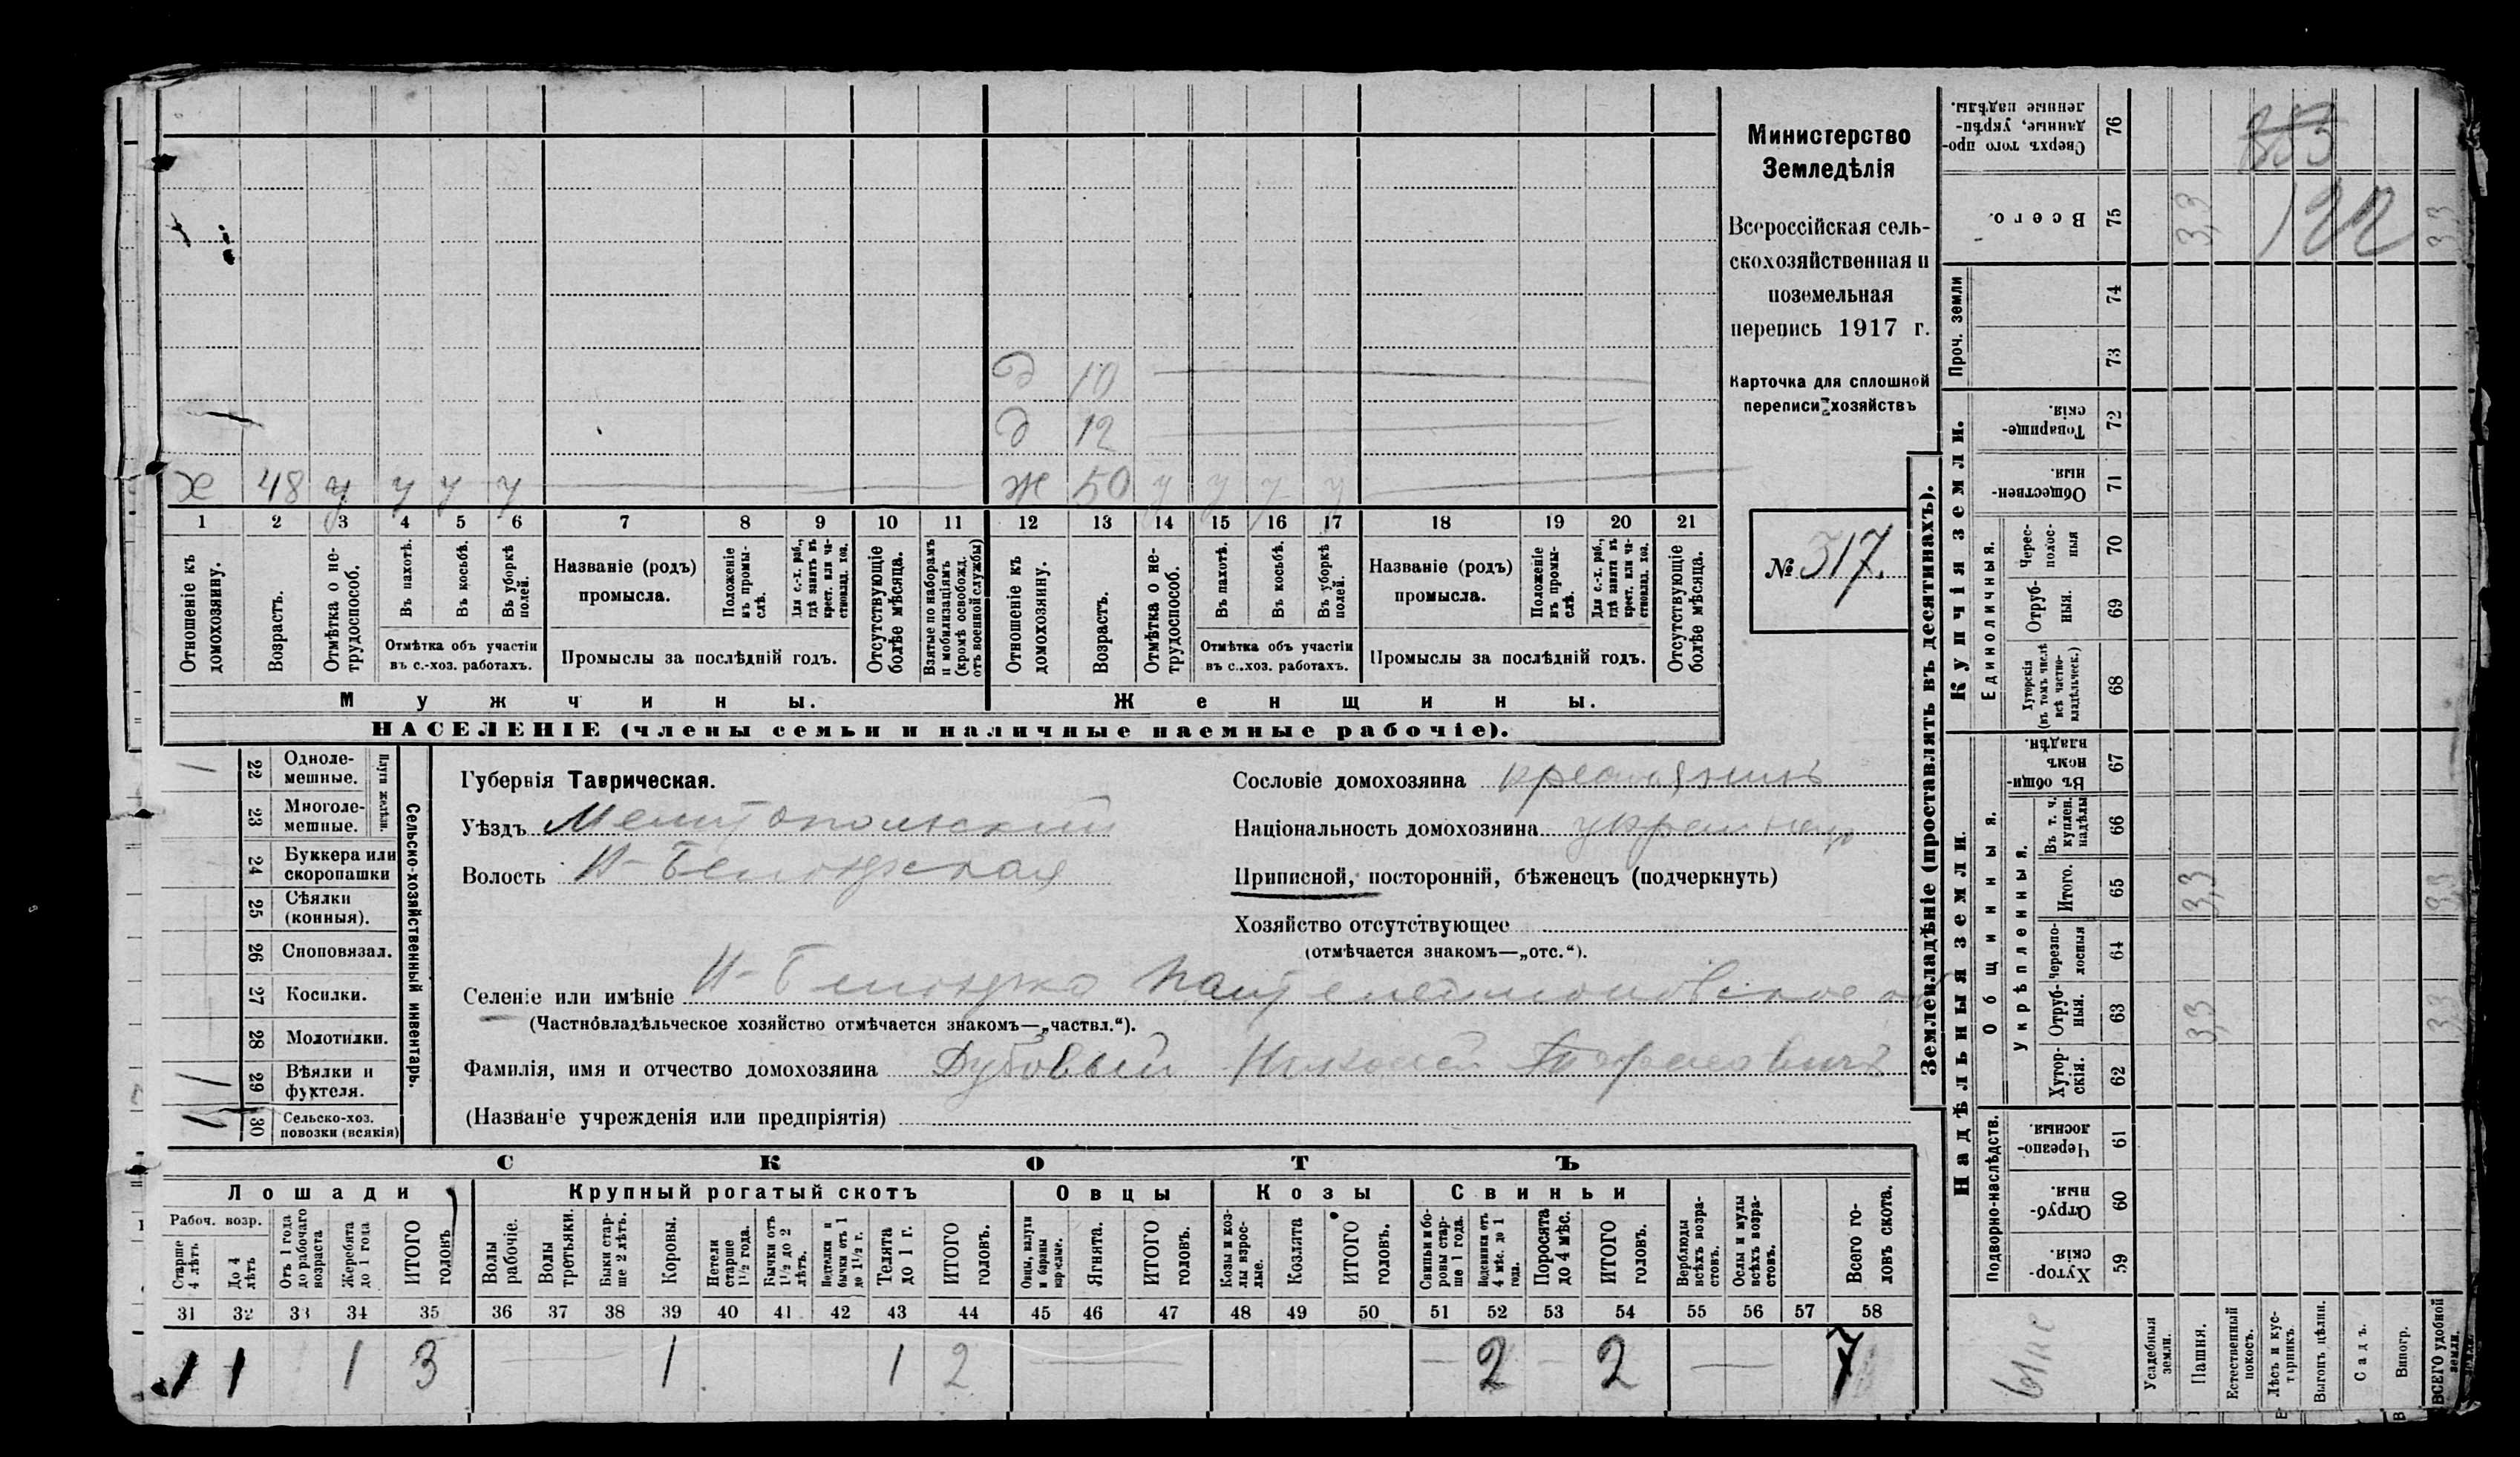 Министерство
Земледѣлія
Всероссійская сель-
скохозяйственная и
поземельная
перепись 1917 г.
Карточка для сплошной
переписи хозяйствъ
№ 317.
д 10
д 12
х 48 у у у у ж 50 у у у у
1 2 3 4 5 6 7 8 9 10 11 12 13 14 15 16 17 18 19 20 21
Отношеніе къ домохозяину.
Возрастъ.
Отмѣтка о не-трудоспособ.
Въ пахотѣ.
Въ косьбѣ.
Въ уборкѣ полей.
Отмѣтка объ участіи
въ с.-хоз. работахъ.
Названіе (родъ)
промысла.
Положеніе въ промы-слѣ.
Для с.-х. раб., гдѣ занятъ въ крест. или ча-стновлад. хоз.
Промыслы за послѣдній годъ.
Отсутствующіе болѣе мѣсяца.
Взятые по наборамъ и мобилизаціямъ (кромѣ освобожд. отъ военной службы)
Отношеніе къ домохозяину.
Возрастъ.
Отмѣтка о не-трудоспособ.
Въ пахотѣ.
Въ косьбѣ.
Въ уборкѣ полей.
Отмѣтка объ участіи
въ с.-хоз. работахъ.
Названіе (родъ)
промысла.
Положеніе въ промы-слѣ.
Для с.-х. раб., гдѣ занята въ крест. или ча-стновлад. хоз.
Промыслы за послѣдній годъ.
Отсутствующіе болѣе мѣсяца.
Мужчины. Женщины.
НАСЕЛЕНІЕ (члены семьи и наличные наемные рабочіе).
22 Одноле-мешные.
23 Многоле-мешные.
Плуги желѣзн.
24 Буккера или скоропашки
25 Сѣялки (конныя).
26 Сноповязал.
27 Косилки.
28 Молотилки.
29 Вѣялки и фухтеля.
30 Сельско-хоз. повозки (всякія)
Сельско-хозяйственный инвентарь.
Губернія Таврическая.
Уѣздъ Мелитопольский
Волость Н-Белозерская
Сословіе домохозяина крестьянинъ
Національность домохозяина украинец
Приписной, посторонній, бѣженецъ (подчеркнуть)
Хозяйство отсутствующее
(отмѣчается знакомъ—„отс.“).
Селеніе или имѣніе Н-Белозерка Пантелеймоновское
(Частновладѣльческое хозяйство отмѣчается знакомъ—„частвл.“).
Фамилія, имя и отчество домохозяина Дубовый Николай
(Названіе учрежденія или предпріятія)
СКОТЪ
Лошади Крупный рогатый скотъ Овцы Козы Свиньи
Рабоч. возр.
Старше 4 лѣтъ
До 4 лѣтъ
Отъ 1 года до рабочаго возраста
Жеребята до 1 года
ИТОГО головъ
Волы рабочіе.
Волы третьяки.
Быки стар-ше 2 лѣтъ.
Коровы.
Нетели старше 1½ года.
Бычки отъ 1½ до 2 лѣтъ.
Подтелки и бычки отъ 1 до 1½ г.
Телята до 1 г.
ИТОГО головъ.
Овцы, валухи и бараны взрослые.
Ягнята.
ИТОГО головъ.
Козы и коз-лы взрос-лые.
Козлята
ИТОГО головъ.
Свиньи и бо-ровы стар-ше 1 года.
Подсвинки отъ 4 мѣс. до 1 года.
Поросята до 4 мѣс.
ИТОГО головъ.
Верблюды всѣхъ возра-стовъ.
Ослы и мулы всѣхъ возра-стовъ.
Всего го-ловъ скота.
31 32 33 34 35 36 37 38 39 40 41 42 43 44 45 46 47 48 49 50 51 52 53 54 55 56 57 58
1 1 1 3 1 1 2 2 2 7
Землевладѣніе (проставлять въ десятинахъ).
Надѣльныя земли. Купчія земли.
Подворно-наслѣдств.
Общинныя.
Укрѣпленныя.
Единоличныя.
Проч. земли
59 Хутор-скія.
60 Отруб-ныя.
61 Черезпо-лосныя.
62 Хутор-скія.
63 Отруб-ныя.
64 Черезпо-лосныя
65 Итого.
66 Въ т. ч. куплен. надѣлы
67 Въ общин-номъ владѣн.
68 Хуторскія (въ томъ числѣ всѣ частно-владѣльческ.)
69 Отруб-ныя.
70 Черес-полос-ныя
71 Обществен-ныя.
72 Товарище-скія.
73
74
75 Всего.
76 Сверхъ того про-данные, укрѣп-ленные надѣлы.
Усадебныя земли.
Пашня. 3,3 3,3 3,3
Естественный покосъ.
Лѣсъ и кус-тарникъ.
Выгонъ цѣлин.
Садъ.
Виногр.
ВСЕГО удобной земли. 3,3 3,3 3,3
122